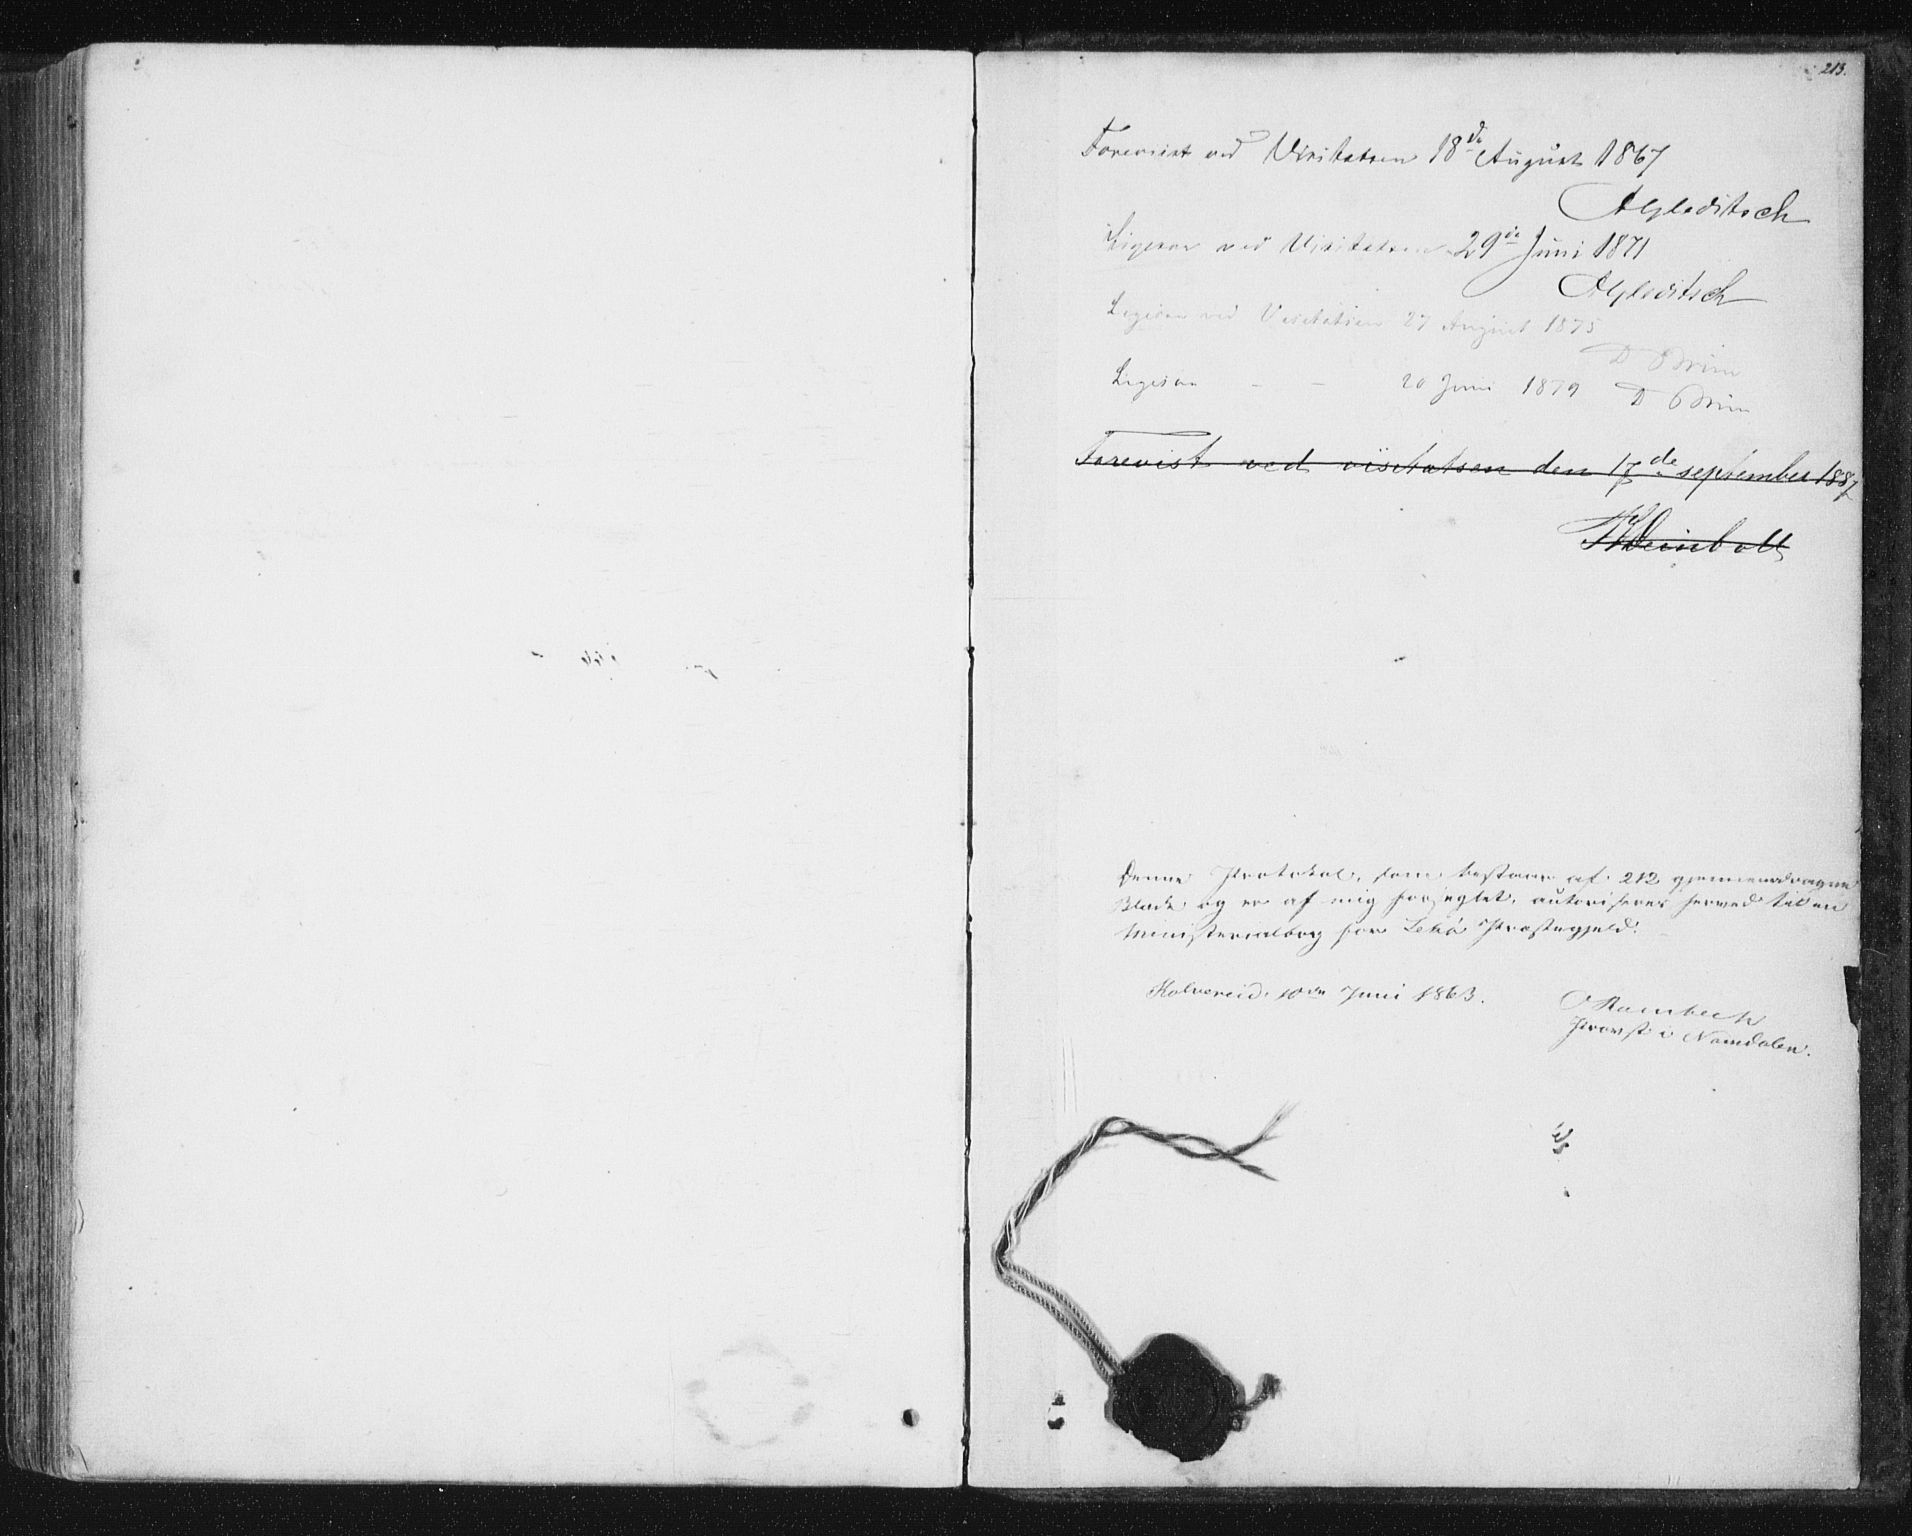 213.
Foreviist ved Visitatsen 18de August 1867
AGleditsch
Ligesaa ved Visitatsen 29de Juni 1871
AGleditsch
Ligesaa ved Visitatsen 27 August 1875
D Grim
Ligesaa - - 20 Juni 1879 D Grim
Forevist ved visitatsen den 17de september 1887
Deinboll
Denne Protokol, som bestaar af 212 gjennemdragne
Blade og er af mig forseglet, autoriseres herved til en
Ministerialbog for Lekø Præstegjeld.
Kolvereid, 10de Juni 1863.
Rambech
Provst i Namdalen.